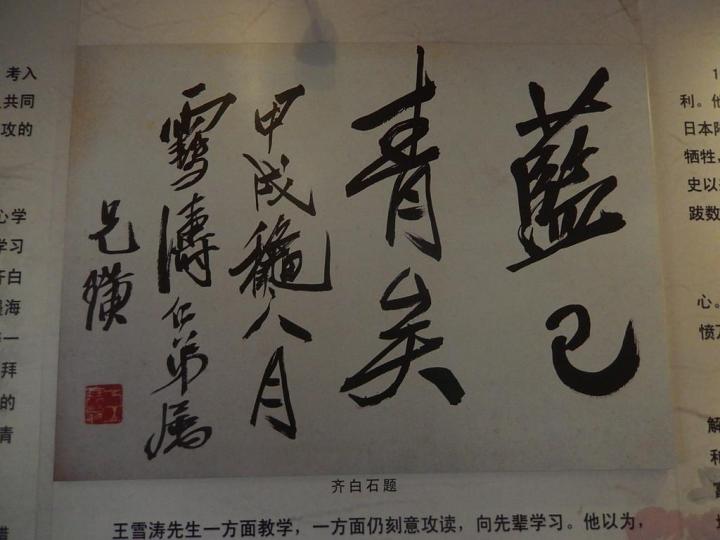 考入
共同
攻的
心学
学习
齐白
一
拜
的
青
藍已
青矣
甲戌龝八月
雪濤仁弟屬
兄璜
齐白石题
王雪涛先生一方面教学，一方面仍刻意攻读，向先辈学习。他以为，
利。他
日本
牺牲，
史以
跋数
心。
解
和